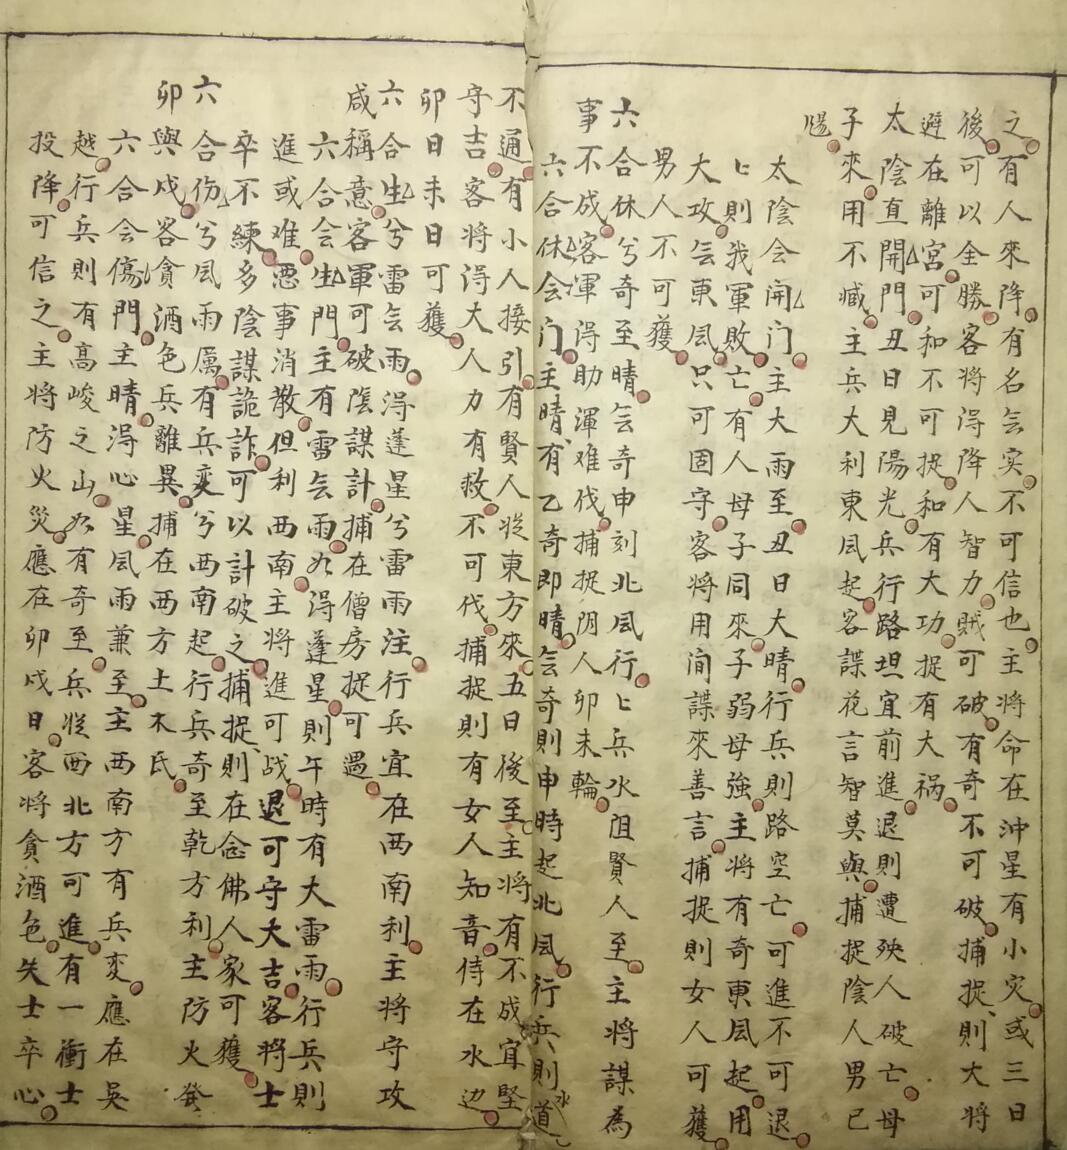 之有人來降有名气实不可信也主將命在冲星有小灾或三日
後可以全勝客將淂降人智力贼可破有奇不可破捕捉則大將
避在離宮可和不可捉和有大功捉有大祸
太陰直開門丑日見陽光兵行路坦宜前進退則遭殃人破亡母
子來用不臧主兵大利東風起客諜花言智莫與捕捉陰人男已
太陰会開门主大雨至丑日大晴行兵則路空亡可進不可退
匕則我軍敗亡有人母子同來子弱母強主將有奇東風起用
大攻气東風只可固守客將用间諜來善言捕捉則女人可獲
男人不可獲
六合休兮奇至晴气奇申刻北風行匕兵水阻賢人至主將謀為
事不成客軍得助渾难伐捕捉阴人卯未輪
六合休会门主晴有乙奇即晴气奇則申時起北風行兵則水道
不通有小人接引有賢人從東方來五日後至主將有不成宜堅
守吉客將得大人力有救不可伐捕捉則有女人知音侍在水边
卯日未日可獲
六合生兮雷气雨淂蓬星兮雷雨注行兵宜在西南利主將守攻
咸稱意客軍可破陰謀計捕在僧房捉可遇
六合会生門主有雷气雨如淂蓬星則午時有大雷雨行兵則
進或难悪事消散但利西南主將進可战退可守大吉客將士
卒不練多陰謀詭詐可以計破之捕捉則在念佛人家可獲
六合伤兮風雨厲有兵変兮西南起行兵奇至乾方利主防火発
卯與戍客貪酒色兵離異捕在西方土木氏
六合会傷門主晴淂心星風雨兼至主西南方有兵変應在吳
越行兵則有高峻之山如有奇至兵從西北方可進有一衝士
投降可信之主將防火災應在卯戍日客將貪酒色失士卒心